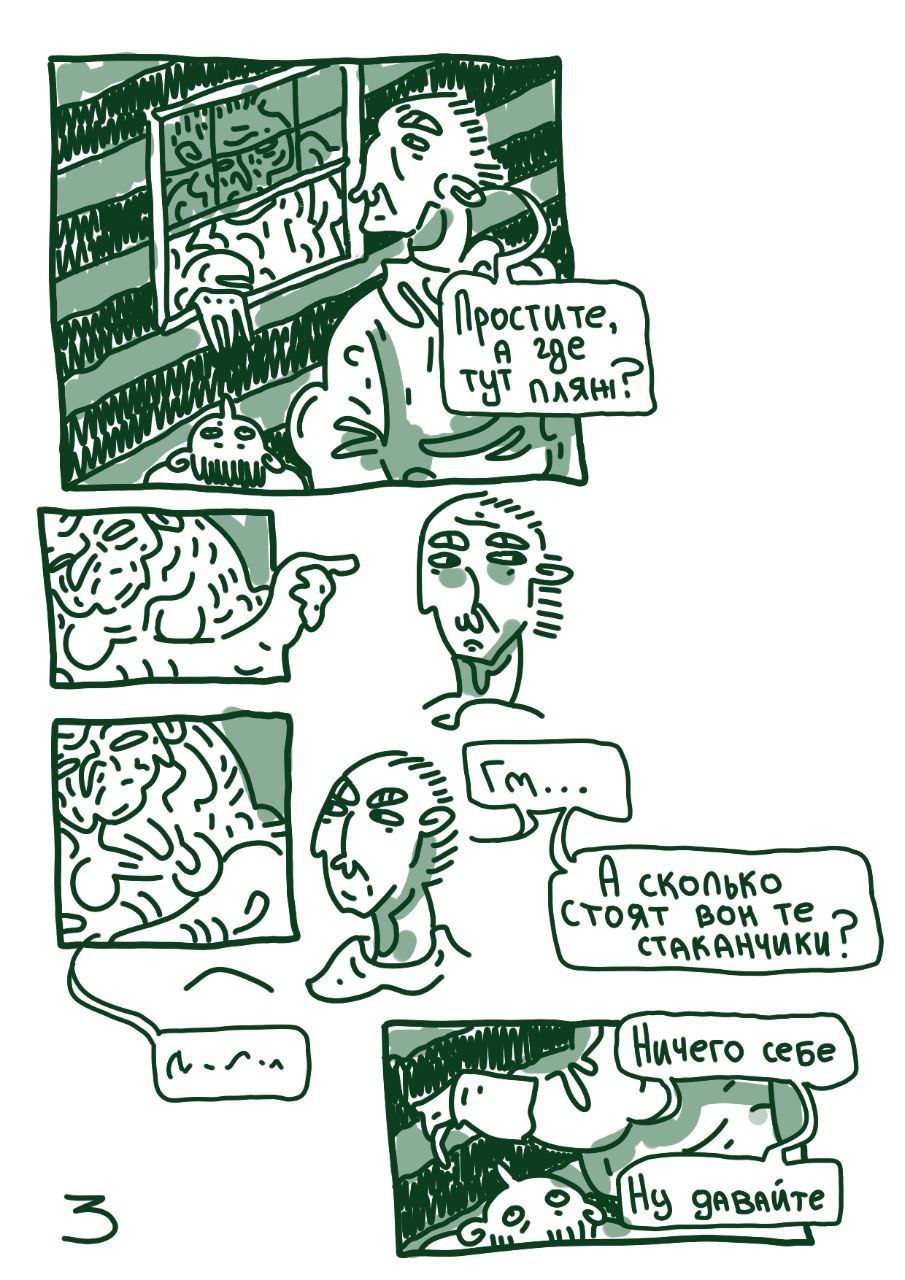 Простите,
а где
тут пляж?
Гм...
А сколько
стоят вон те
стаканчики?
Ничего себе
Ну давайте
3